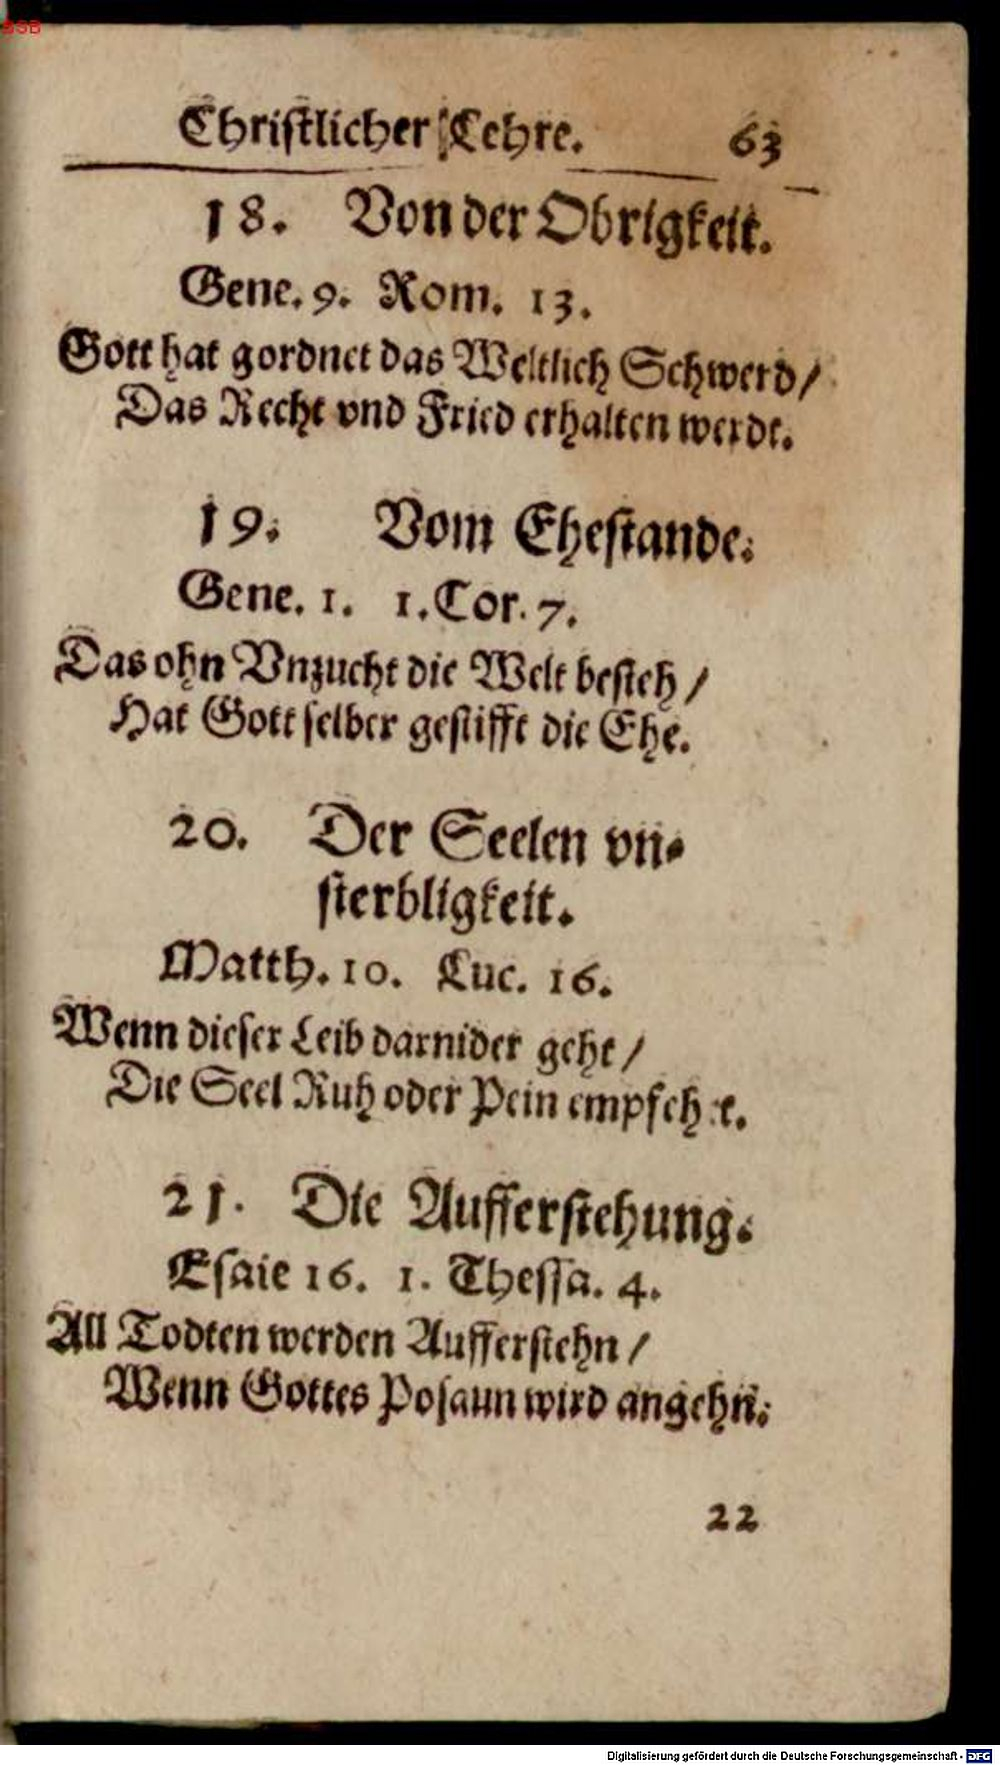 BSB
Christlicher Lehre. 63
18. Von der Obrigkeit.
Gene. 9. Rom. 13.
Gott hat gordnet das Weltlich Schwerd/
Das Recht vnd Fried erhalten werde.
19. Vom Ehestande.
Gene. 1. 1. Cor. 7.
Das ohn Vnzucht die Welt besteh/
Hat Gott selber gestifft die Ehe.
20. Der Seelen vn-
sterbligkeit.
Matth. 10. Luc. 16.
Wenn dieser Leib darnider geht/
Die Seel Ruh oder Pein empfeht.
21. Die Aufferstehung.
Esaie 16. 1. Thessa. 4.
All Todten werden Aufferstehn/
Wenn Gottes Posaun wird angehn.
22
Digitalisierung gefördert durch die Deutsche Forschungsgemeinschaft - DFG